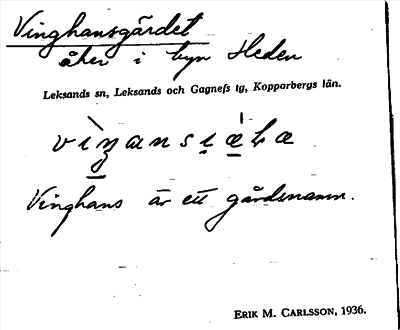 Vinghansgärdet
åker i byn Heden
Leksands sn, Leksands och Gagnefs tg, Kopparbergs län.
Vinghans är ett gårdsnamn.
ERIK M. CARLSSON, 1936.